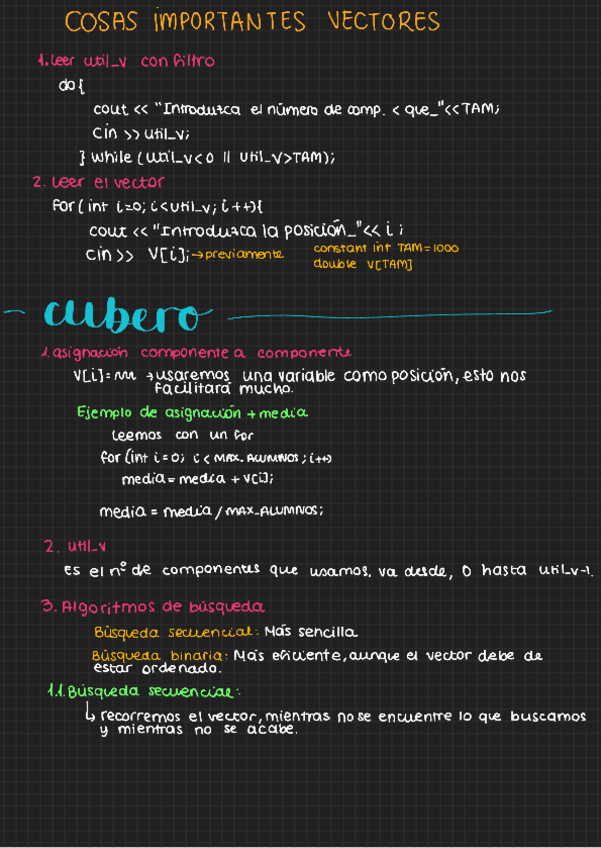 COSAS IMPORTANTES VECTORES
1. Leer util_v con filtro
do {
cout << "Introduzca el número de comp. < que_"<<TAM;
cin >> util_v;
} while (util_v<0 || util_v>TAM);
2. Leer el vector
for (int i=0; i<util_v; i++){
cout << "Introduzca la posición_"<< i ;
cin >> v[i]; → previamente constant int TAM=1000
double v[TAM]
cubero
1. asignación componente a componente
v[i]= → usaremos una variable como posición, esto nos
facilitará mucho.
Ejemplo de asignación → media
Leemos con un for
for (int i=0; i < MAX_ALUMNOS; i++)
media = media + v[i];
media = media / MAX_ALUMNOS;
2. util_v
Es el nº de componentes que usamos. va desde, 0 hasta util_v-1.
3. Algoritmos de búsqueda
Búsqueda secuencial: Más sencilla
Búsqueda binaria: Más eficiente, aunque el vector debe de
estar ordenado.
1.1. Búsqueda secuencial:
↳ recorremos el vector, mientras no se encuentre lo que buscamos
y mientras no se acabe.